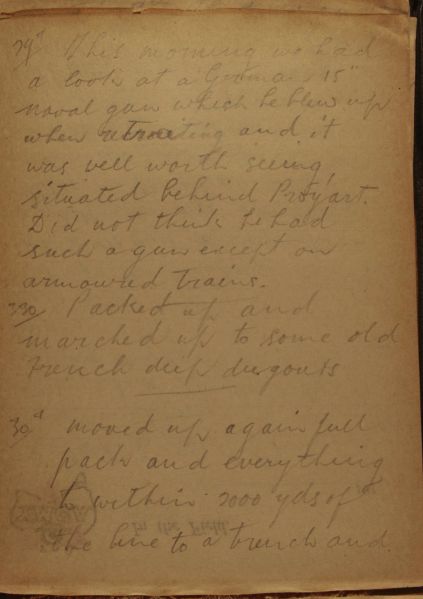 29th This morning we had
a look at a German 15"
naval gun which he blew up
when retreating and it
was well worth seeing,
situated behind Proyart.
Did not think he had
such a gun except on
armoured trains.
330/ Packed up and
marched up to some old
French deep dugouts
30th moved up again full
pack and everything
to within 2000 yds of
the line to a trench and
In the Field